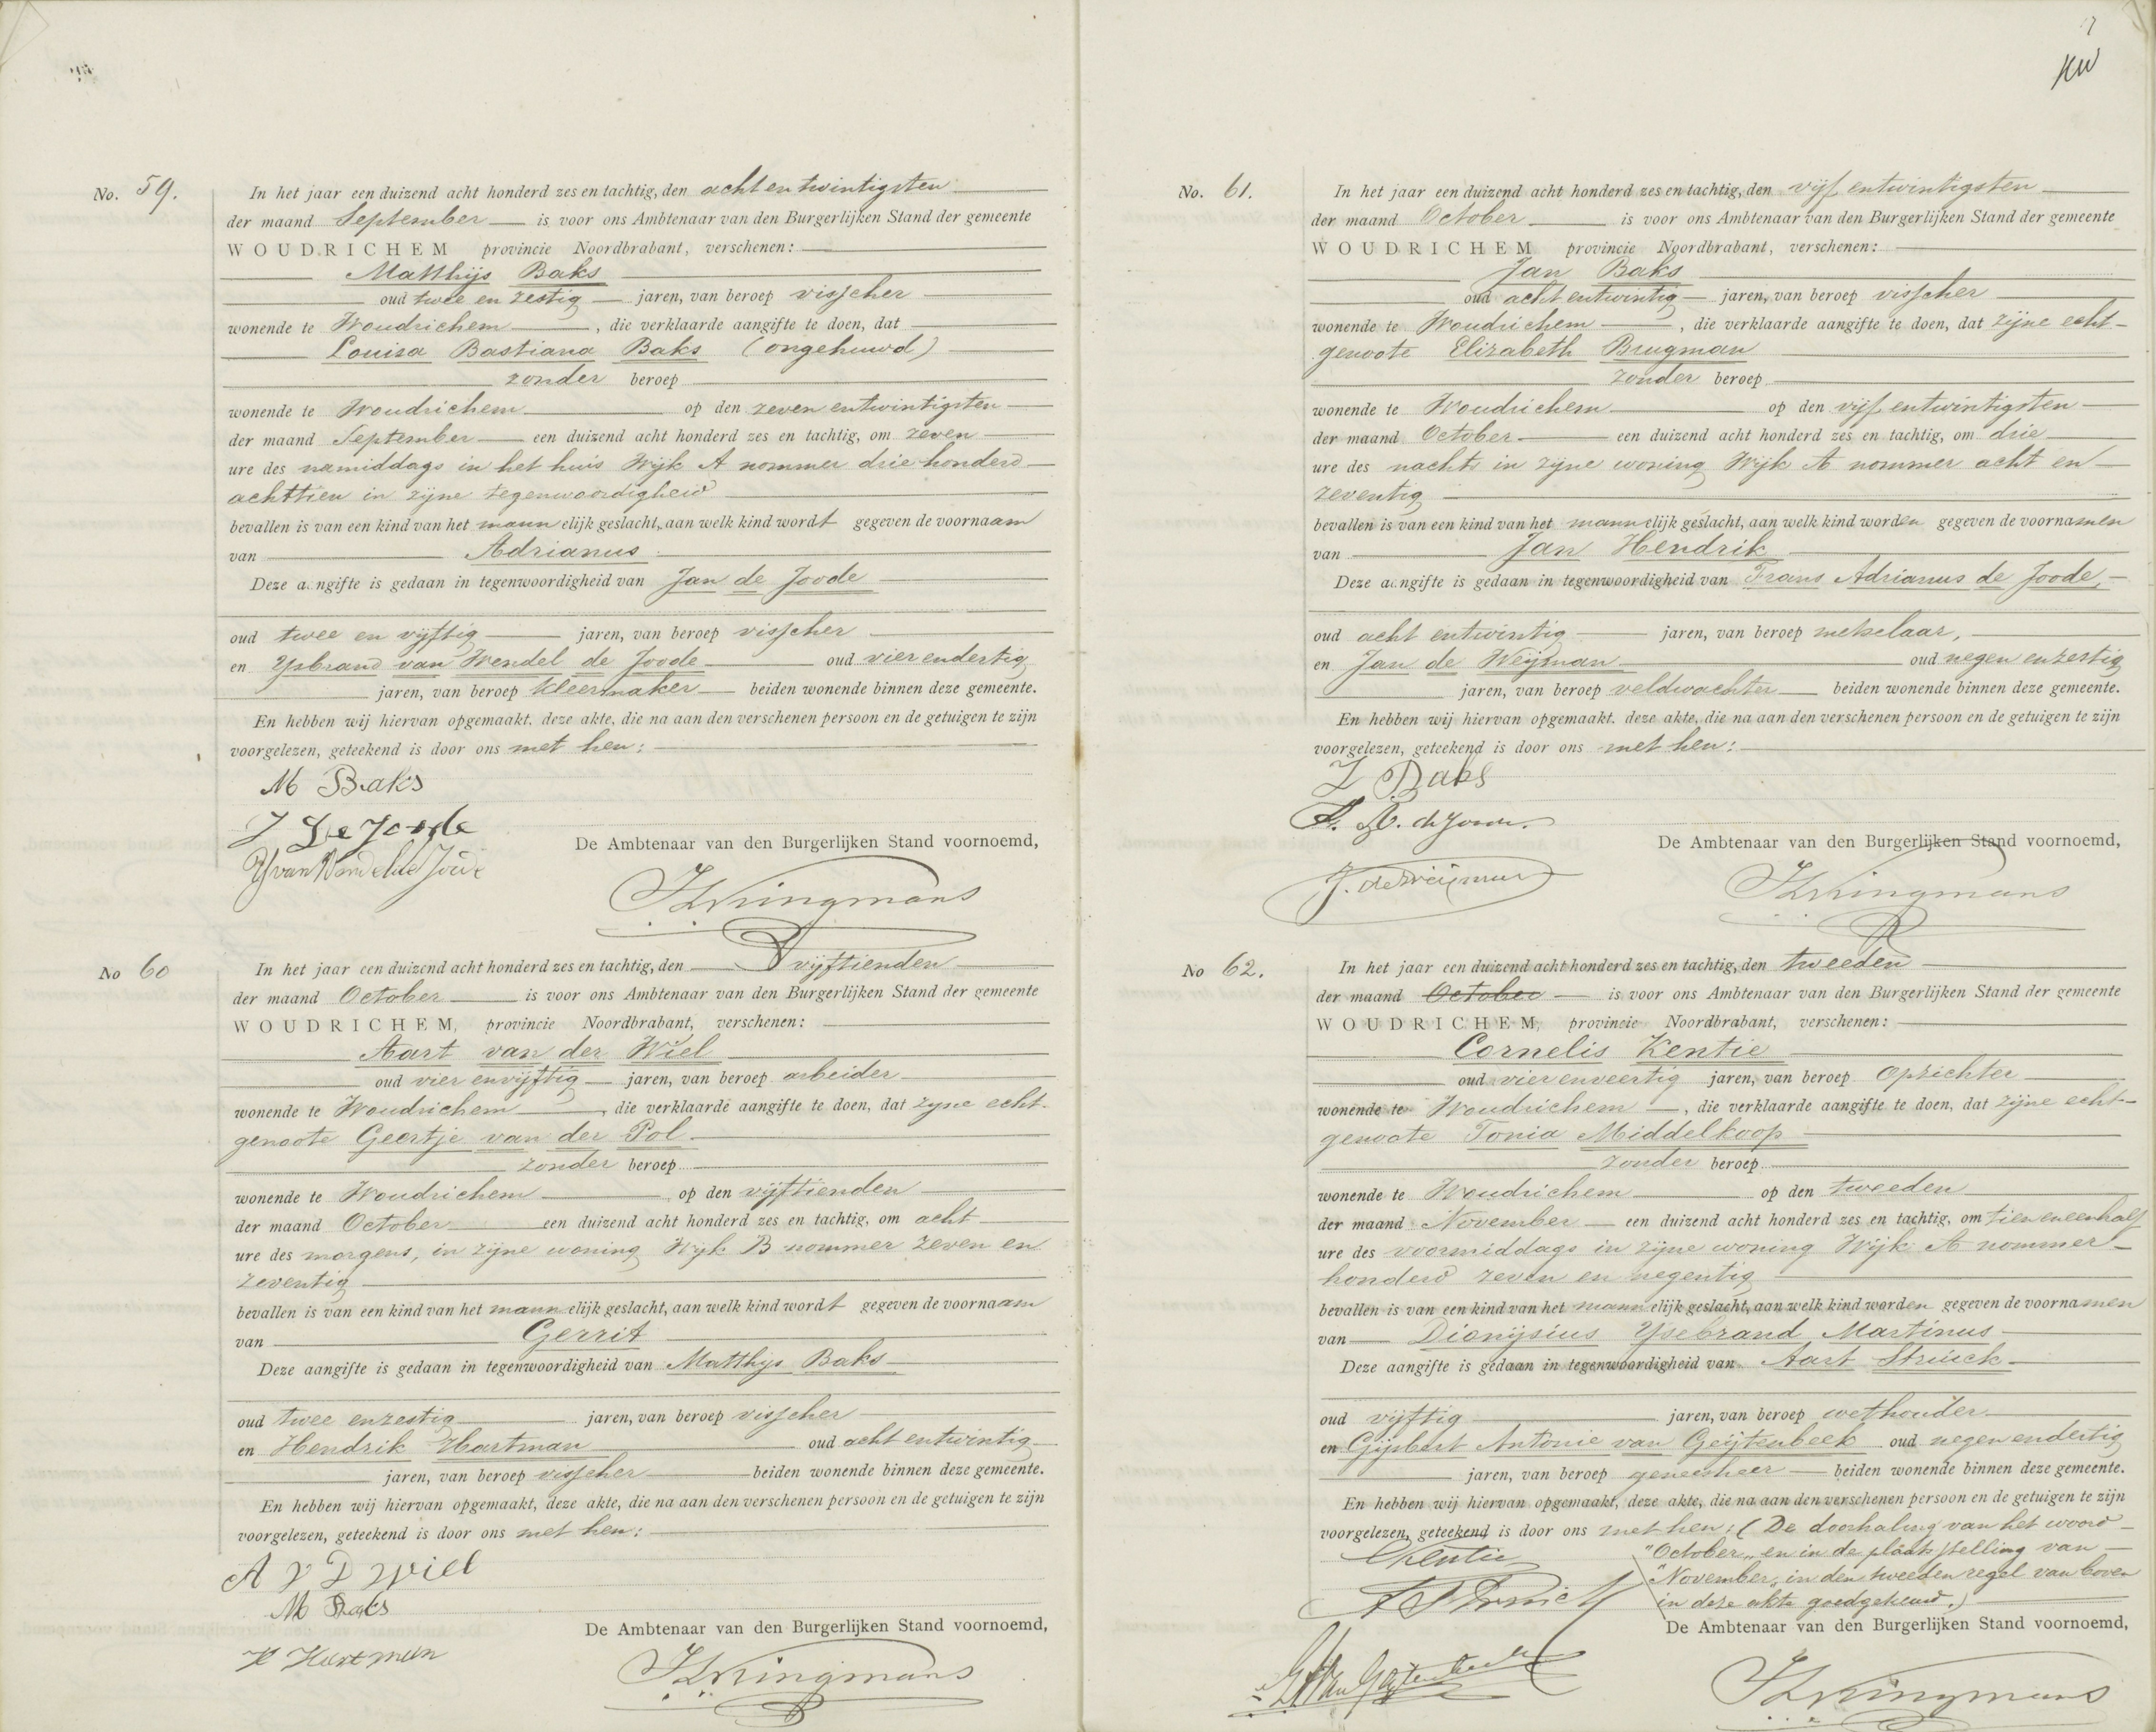 No. 59.
In het jaar een duizend acht honderd zes en tachtig, den acht en twintigsten
der maand September is voor ons Ambtenaar van den Burgerlijken Stand der gemeente
WOUDRICHEM provincie Noordbrabant, verschenen:
Matthijs Baks
oud twee en zestig jaren, van beroep visscher
wonende te Woudrichem, die verklaarde aangifte te doen, dat
Louisa Bastiana Baks (ongehuwd)
zonder beroep
wonende te Woudrichem op den zeven entwintigsten
der maand September een duizend acht honderd zes en tachtig, om zeven
ure des namiddags in het huis Wijk A nommer drie honderd
achttien in zijne tegenwoordigheid
bevallen is van een kind van het mannelijk geslacht, aan welk kind wordt gegeven de voornaam
van Adrianus
Deze aangifte is gedaan in tegenwoordigheid van Jan de Joode
oud twee en vijftig jaren, van beroep visscher
en Ysbrand van Wendel de Joode oud vier endertig
jaren, van beroep kleermaker beiden wonende binnen deze gemeente.
En hebben wij hiervan opgemaakt, deze akte, die na aan den verschenen persoon en de getuigen te zijn
voorgelezen, geteekend is door ons met hen:
M Baks
J de Joode
Y van Wendel de Joode
De Ambtenaar van den Burgerlijken Stand voornoemd,
No 60
In het jaar een duizend acht honderd zes en tachtig, den vijftienden
der maand October is voor ons Ambtenaar van den Burgerlijken Stand der gemeente
WOUDRICHEM, provincie Noordbrabant, verschenen:
Aart van der Wiel
oud vier envijftig jaren, van beroep arbeider
wonende te Woudrichem, die verklaarde aangifte te doen, dat zijne echt-
genoote Geertje van der Pol
zonder beroep
wonende te Woudrichem op den vijftienden
der maand October een duizend acht honderd zes en tachtig, om acht
ure des morgens, in zijne woning Wijk B nommer zeven en
zeventig
bevallen is van een kind van het mannelijk geslacht, aan welk kind wordt gegeven de voornaam
van Gerrit
Deze aangifte is gedaan in tegenwoordigheid van Matthijs Baks
oud twee enzestig jaren, van beroep visscher
en Hendrik Hartman oud acht entwintig
jaren, van beroep visscher beiden wonende binnen deze gemeente.
En hebben wij hiervan opgemaakt, deze akte, die na aan den verschenen persoon en de getuigen te zijn
voorgelezen, geteekend is door ons met hen:
A V D Wiel
M Baks
H Hartman
De Ambtenaar van den Burgerlijken Stand voornoemd,
No. 61.
In het jaar een duizend acht honderd zes en tachtig, den vijf entwintigsten
der maand October is voor ons Ambtenaar van den Burgerlijken Stand der gemeente
WOUDRICHEM provincie Noordbrabant, verschenen:
Jan Baks
oud acht entwintig jaren, van beroep visscher
wonende te Woudrichem, die verklaarde aangifte te doen, dat zijne echt-
genoote Elizabeth Brugman
zonder beroep
wonende te Woudrichem op den vijf entwintigsten
der maand October een duizend acht honderd zes en tachtig, om drie
ure des nachts in zijne woning Wijk A nommer acht en
zeventig
bevallen is van een kind van het mannelijk geslacht, aan welk kind worden gegeven de voornamen
van Jan Hendrik
Deze aangifte is gedaan in tegenwoordigheid van Frans Adrianus de Joode,
oud acht entwintig jaren, van beroep metselaar,
en Jan de Weijman oud negen enzestig
jaren, van beroep veldwachter beiden wonende binnen deze gemeente.
En hebben wij hiervan opgemaakt, deze akte, die na aan den verschenen persoon en de getuigen te zijn
voorgelezen, geteekend is door ons met hen:
J Baks
F. A. de Joode.
J. de Weijman
De Ambtenaar van den Burgerlijken Stand voornoemd,
No 62.
In het jaar een duizend acht honderd zes en tachtig, den tweeden
der maand October is voor ons Ambtenaar van den Burgerlijken Stand der gemeente
WOUDRICHEM, provincie Noordbrabant, verschenen:
Cornelis Kentie
oud vier enveertig jaren, van beroep Opzichter
wonende te Woudrichem, die verklaarde aangifte te doen, dat zijne echt-
genoote Tonia Middelkoop
zonder beroep
wonende te Woudrichem op den tweeden
der maand November een duizend acht honderd zes en tachtig, om tien eneenhalf
ure des voormiddags in zijne woning Wijk A nommer
honderd zeven en negentig
bevallen is van een kind van het mannelijk geslacht, aan welk kind worden gegeven de voornamen
van Dionijsius Ysebrand Martinus
Deze aangifte is gedaan in tegenwoordigheid van Aart Struick
oud vijftig jaren, van beroep wethouder
en Gijsbert Antonie van Geijtenbeek oud negen endertig
jaren, van beroep geneesheer beiden wonende binnen deze gemeente.
En hebben wij hiervan opgemaakt, deze akte, die na aan den verschenen persoon en de getuigen te zijn
voorgelezen, geteekend is door ons met hen: (De doorhaling van het woord
"October" en in de plaatsstelling van
"November" in den tweeden regel van boven
in deze akte goedgekeurd.)
CKentie
A Struick
G A van Geijtenbeek
De Ambtenaar van den Burgerlijken Stand voornoemd,